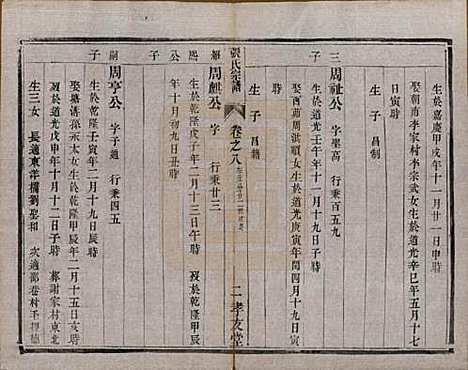 生於嘉慶甲戌年十一月廿一日申時
娶朝市李家村李宗武女生於道光辛巳年五月十七
日寅時
生子 昌制
三子
周祉公 字墨高 行秉百五九
生於道光壬午年十一月十九日戌時
娶西茆周洪順女生於道光庚寅年閏四月十九日
時
生子 昌積
張氏宗譜
卷之八
二 孝友堂
繼熙公子
周麒公 字 行秉廿三
生於乾隆戊子年二月十三日午時 歿於乾隆甲辰
年十月初九日丑時
嗣子
周亨公 字子通 行秉四五
生於乾隆壬寅年二月十九日辰時
娶塘濟孫永太女生於乾隆甲辰年二月十五日亥時
歿於道光戊申年十月十二日子時 葬謝家村東北
生三女 長適東洋橋劉聖和 次適鄒巷村王